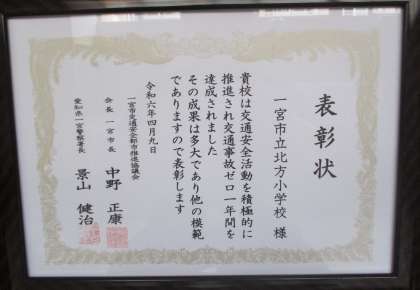 表彰状
一宮市立北方小学校 様
貴校は交通安全活動を積極的に
推進され交通事故ゼロ一年間を
達成されました
その成果は多大であり他の模範
でありますので表彰します
令和六年四月九日
一宮市交通安全都市推進協議会
会長 一宮市長 中野正康
愛知県一宮警察署長 景山健治